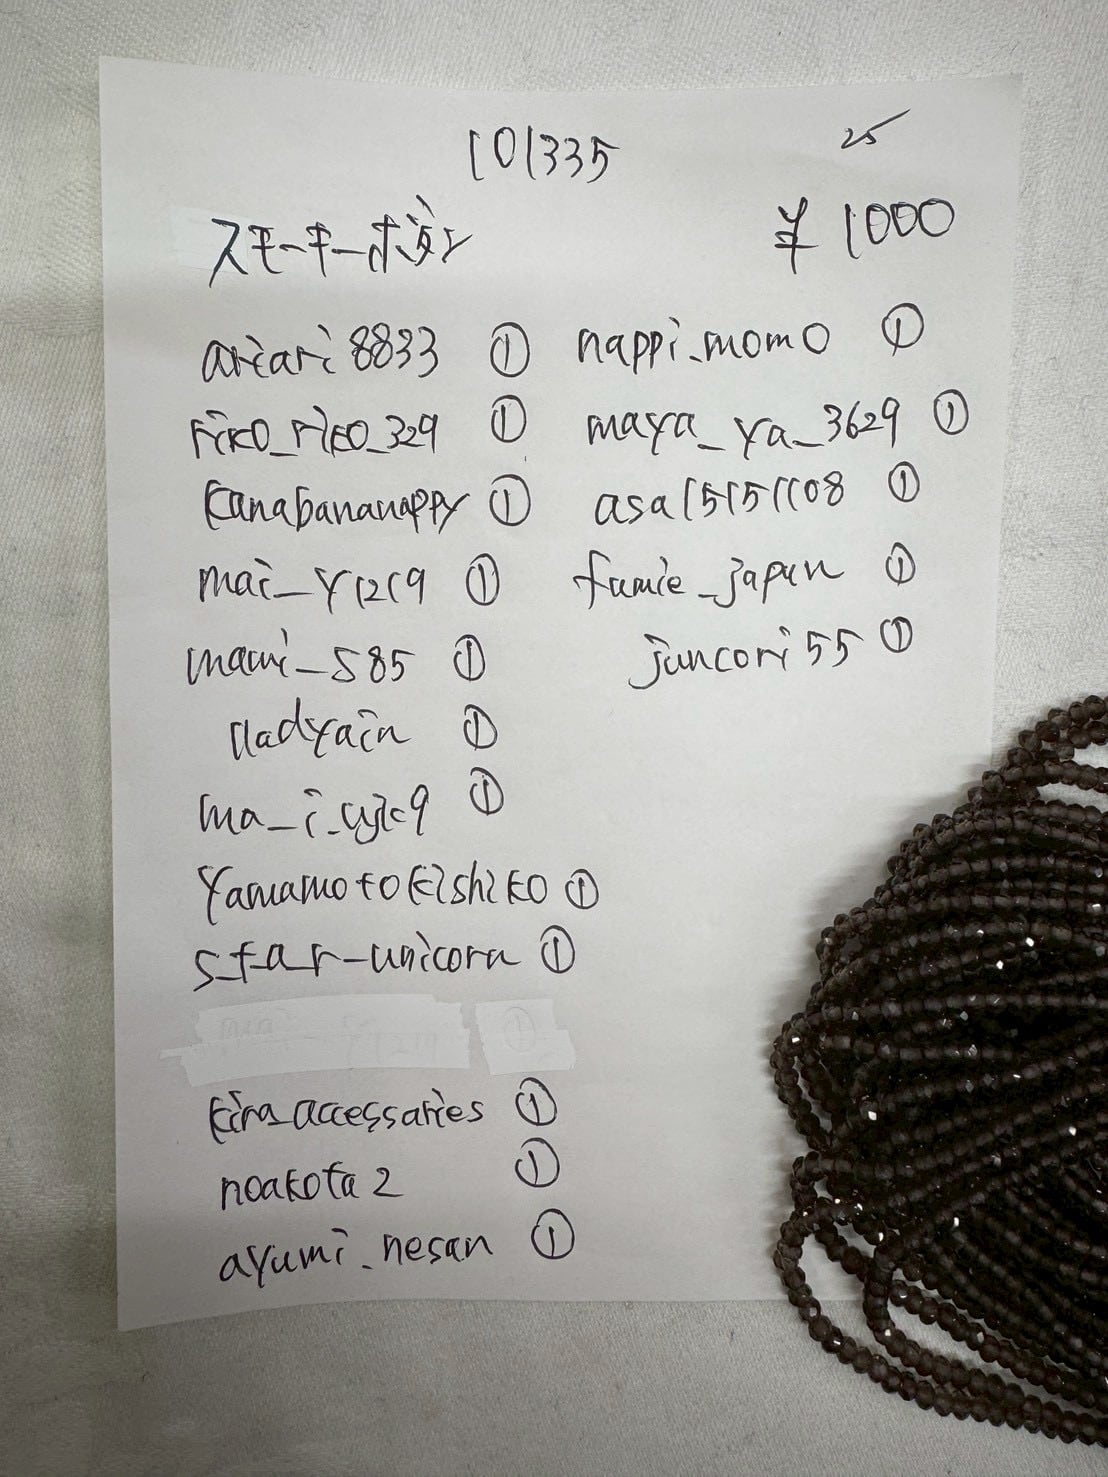 101335
25
スモーキーボタン
¥1000
ariari8833 ①
riko_riko_329 ①
kanabananappy ①
mai_y1219 ①
mami_585 ①
lladyain ①
①
yamamotokishiko ①
s_t_a_r_unicorn ①
kira_accessaries ①
noakota2 ①
ayumi_nesan ①
nappi_momo ①
maya_ya_3629 ①
asa15151108 ①
fumie_japan ①
juncori55 ①